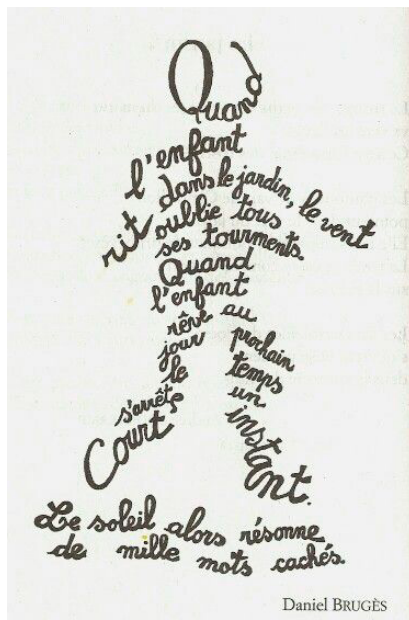 Quand
l'enfant
rit dans le jardin, le vent
oublie tous
ses tourments.
Quand
l'enfant
rêve au
jour prochain
le temps
s'arrête un
Court instant.
Le soleil alors résonne
de mille mots cachés.
Daniel BRUGÈS